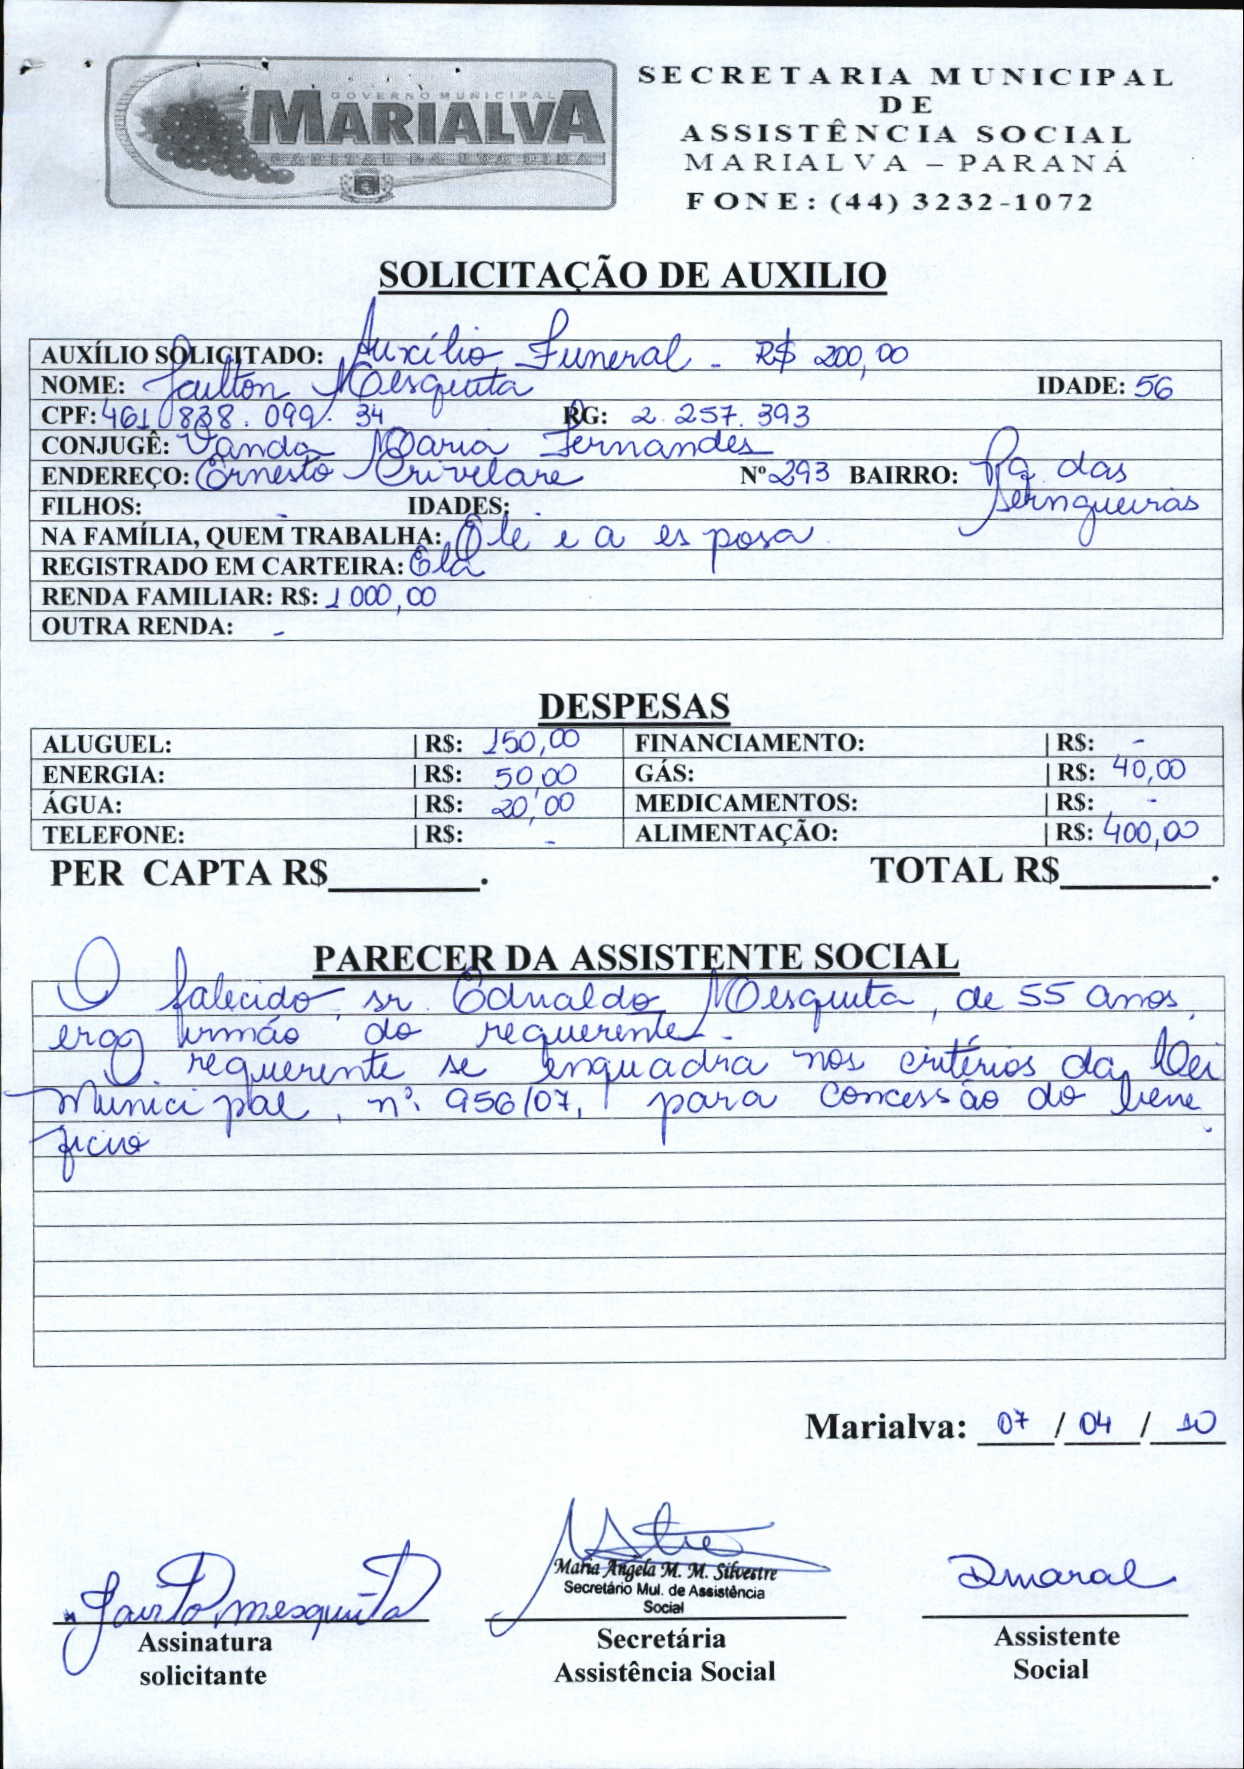 GOVERNO MUNICIPAL
MARIALVA
CAPITAL DA UVA FINA
SECRETARIA MUNICIPAL
DE
ASSISTÊNCIA SOCIAL
MARIALVA – PARANÁ
FONE: (44) 3232-1072
SOLICITAÇÃO DE AUXILIO
AUXÍLIO SOLICITADO: Auxílio Funeral - R$ 200,00
NOME: Mesquita IDADE: 56
CPF: 461 838.099.34 RG: 2.257.393
CONJUGÊ: Vanda Maria Fernandes
ENDEREÇO: Ernesto Crivelare Nº 293 BAIRRO: Pq das
Seringueiras
FILHOS: - IDADES: -
NA FAMÍLIA, QUEM TRABALHA: Ele e a esposa
REGISTRADO EM CARTEIRA: Ela
RENDA FAMILIAR: R$: 1 000,00
OUTRA RENDA: -
DESPESAS
ALUGUEL: | R$: 150,00 FINANCIAMENTO: | R$: -
ENERGIA: | R$: 50,00 GÁS: | R$: 40,00
ÁGUA: | R$: 20,00 MEDICAMENTOS: | R$: -
TELEFONE: | R$: - ALIMENTAÇÃO: | R$: 400,00
PER CAPTA R$________. TOTAL R$________.
PARECER DA ASSISTENTE SOCIAL
O falecido, sr. Edualdo Mesquita, de 55 anos,
era irmão do requerente.
O requerente se enquadra nos critérios da Lei
Municipal, nº. 956/07, para concessão do bene
fício.
Marialva: 07 / 04 / 10
Maria Ângela M. M. Silvestre
Secretário Mul. de Assistência
Social
mesquita
Dmaral
Assinatura
solicitante
Secretária
Assistência Social
Assistente
Social